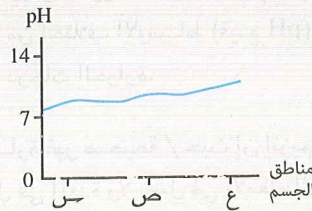 pH
14
7
0
س ص ع
مناطق
الجسم